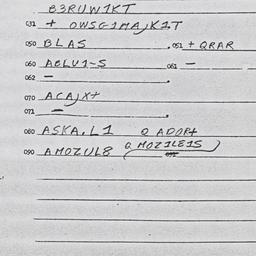 B3RUW1KT
031 + OWSG1MAJK1T
050 BLAS . 051 + QRAR
060 ABLU1-S 061 -
062 -
070 ACAJX+
071 -
080 ASKA, L1 Q ADOR+
090 AMOZUL8 (Q MOZ1LE1S)